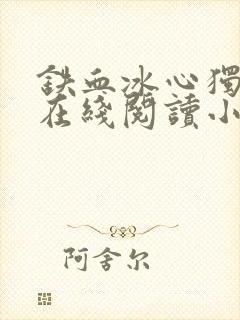 鉄血冰心獨
在綫閱讀小
阿舍尔